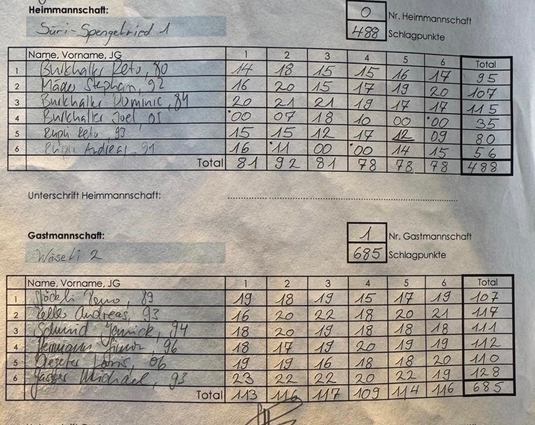 Heimmannschaft:
0 Nr. Heimmannschaft
Süri-Spengelried 1
488 Schlagpunkte
Name, Vorname, JG 1 2 3 4 5 6 Total
1 Burkhalter Reto, 80 14 18 15 15 16 17 95
2 Mäder Stephan, 92 16 20 15 17 19 20 107
3 Burkhalter Dominic, 84 20 21 21 19 17 17 115
4 Burkhalter Joel, 05 00 07 18 10 00 00 35
5 Reto, 93 15 15 12 17 12 09 80
6 Andreas, 91 16 11 00 00 14 15 56
Total 81 92 81 78 78 78 488
Unterschrift Heimmannschaft:
Gastmannschaft:
1 Nr. Gastmannschaft
Wäseli 2
685 Schlagpunkte
Name, Vorname, JG 1 2 3 4 5 6 Total
1 Stöckli 89 19 18 19 15 17 19 107
2 Andreas, 93 16 20 22 18 20 21 117
3 Schmid Jannick, 94 18 20 19 18 18 18 111
4 Herrmann Simon, 96 18 17 19 20 19 19 112
5 06 19 19 16 18 18 20 110
6 Michael, 93 23 22 22 20 22 19 128
Total 113 116 117 109 114 116 685